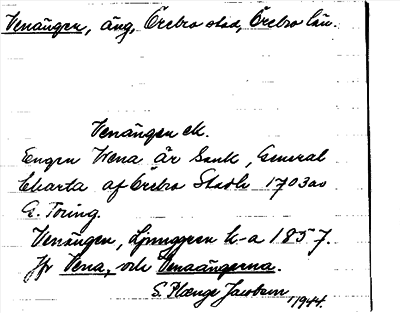 Venängen, äng, Örebro stad, Örebro län.
Venängen ek.
Engen Wena är Sank, General
Charta af Örebro Stadh 1703 av
G. Toring.
Venängen, Ljunggren k-a 1857.
Jfr Vena, och Venaängarna.
S. Plænge Jacobson
1944.